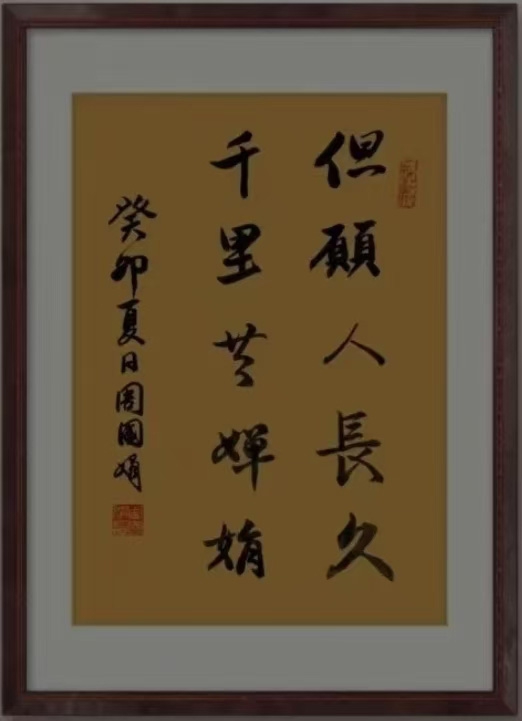 但願人長久
千里共嬋娟
癸卯夏日周國娟